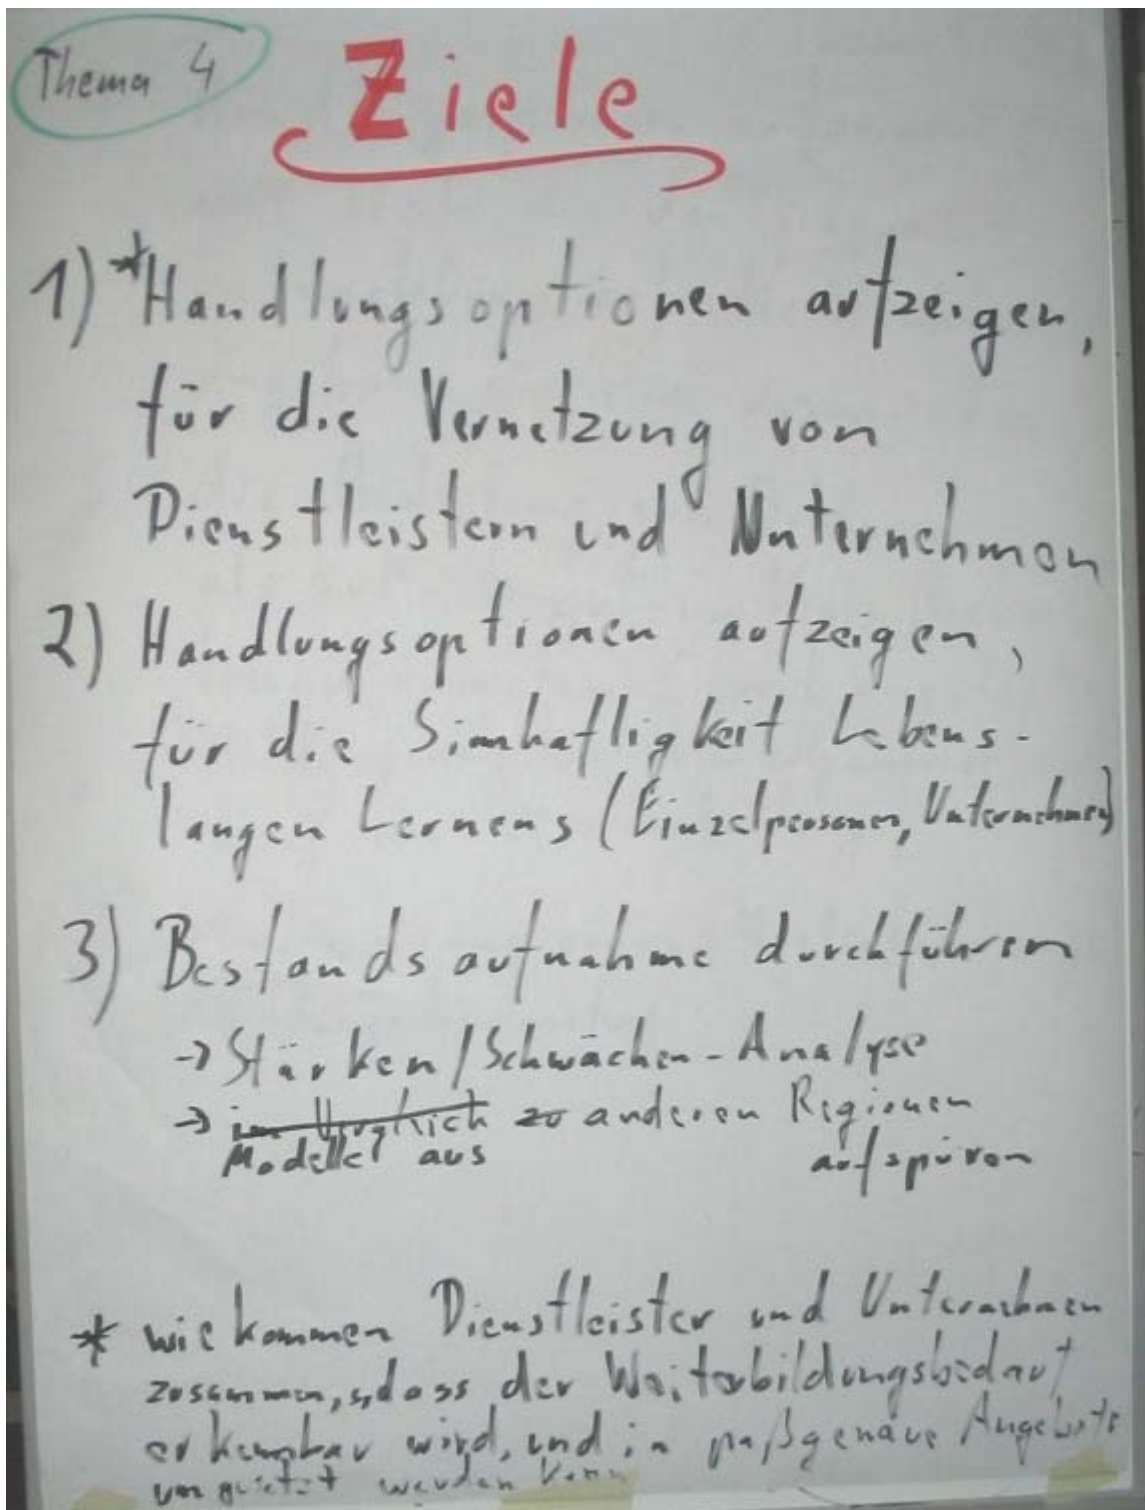 Thema 4
Ziele
1) *Handlungsoptionen aufzeigen,
für die Vernetzung von
Dienstleistern und Unternehmen
2) Handlungsoptionen aufzeigen,
für die Sinnhaftigkeit Lebens-
langen Lernens (Einzelpersonen, Unternehmen)
3) Bestandsaufnahme durchführen
→ Stärken/Schwächen-Analyse
→ im Vergleich zu anderen Regionen
Modelle aus aufspüren
* wie kommen Dienstleister und Unternehmen
zusammen, dass der Weiterbildungsbedarf
erkennbar wird, und in paßgenaue Angebote
umgesetzt werden kann